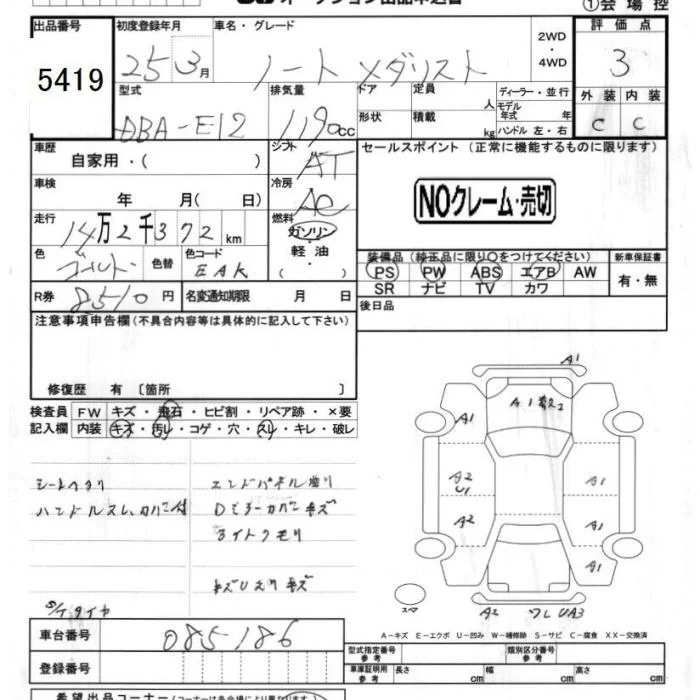 ①会場控
出品番号 初度登録年月 車名・グレード 評価点
5419 25 3月 ノート メダリスト 2WD・4WD 3
型式 排気量 ドア 定員 人 ディーラー・並行 外装 内装
DBA-E12 1190cc 形状 積載 kg モデル年式 年 ハンドル 左・右 C C
車歴 自家用・( ) シフト AT セールスポイント (正常に機能するものに限ります)
車検 年 月( 日) 冷房 AC NOクレーム・売切
走行 14万2千372km 燃料 ガソリン・軽油・( )
色 ゴールド 色替 色コード EAK 装備品 (純正品に限り○をつけてください) 新車保証書
PS PW ABS エアB AW 有・無
SR ナビ TV カワ
R券 8510円 名変通知期限 月 日 後日品
注意事項申告欄(不具合内容等は具体的に記入して下さい)
修復歴 有 〔箇所 〕
検査員 FW キズ・飛石・ヒビ割・リペア跡・×要
記入欄 内装 キズ・汚レ・コゲ・穴・スレ・キレ・破レ
シートヘタリ エンドパネル曲り
ハンドルスレ、カバー付 Dミラーカバーキズ
ライトクモリ
キズUえりキズ
S/Tタイヤ
A1
A1
A1
A2
U1
A1
A2
A1
A1
スペ
A2 ワレ UA3
A-キズ E-エクボ U-凹み W-補修跡 S-サビ C-腐食 XX-交換済
車台番号 085186
型式指定番号 参考 類別区分番号 参考
登録番号 車庫証明用 参考 長さ cm 幅 cm 高さ cm
希望出品コーナー